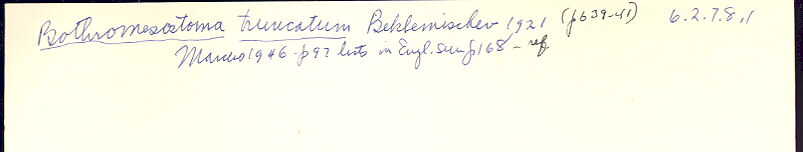 Bothromesostoma truncatum Beklemischev 1921 (p639-41) 6.2.7.8.1
Marcus 1946 - p97 lists in Engl. sum p168 - ref